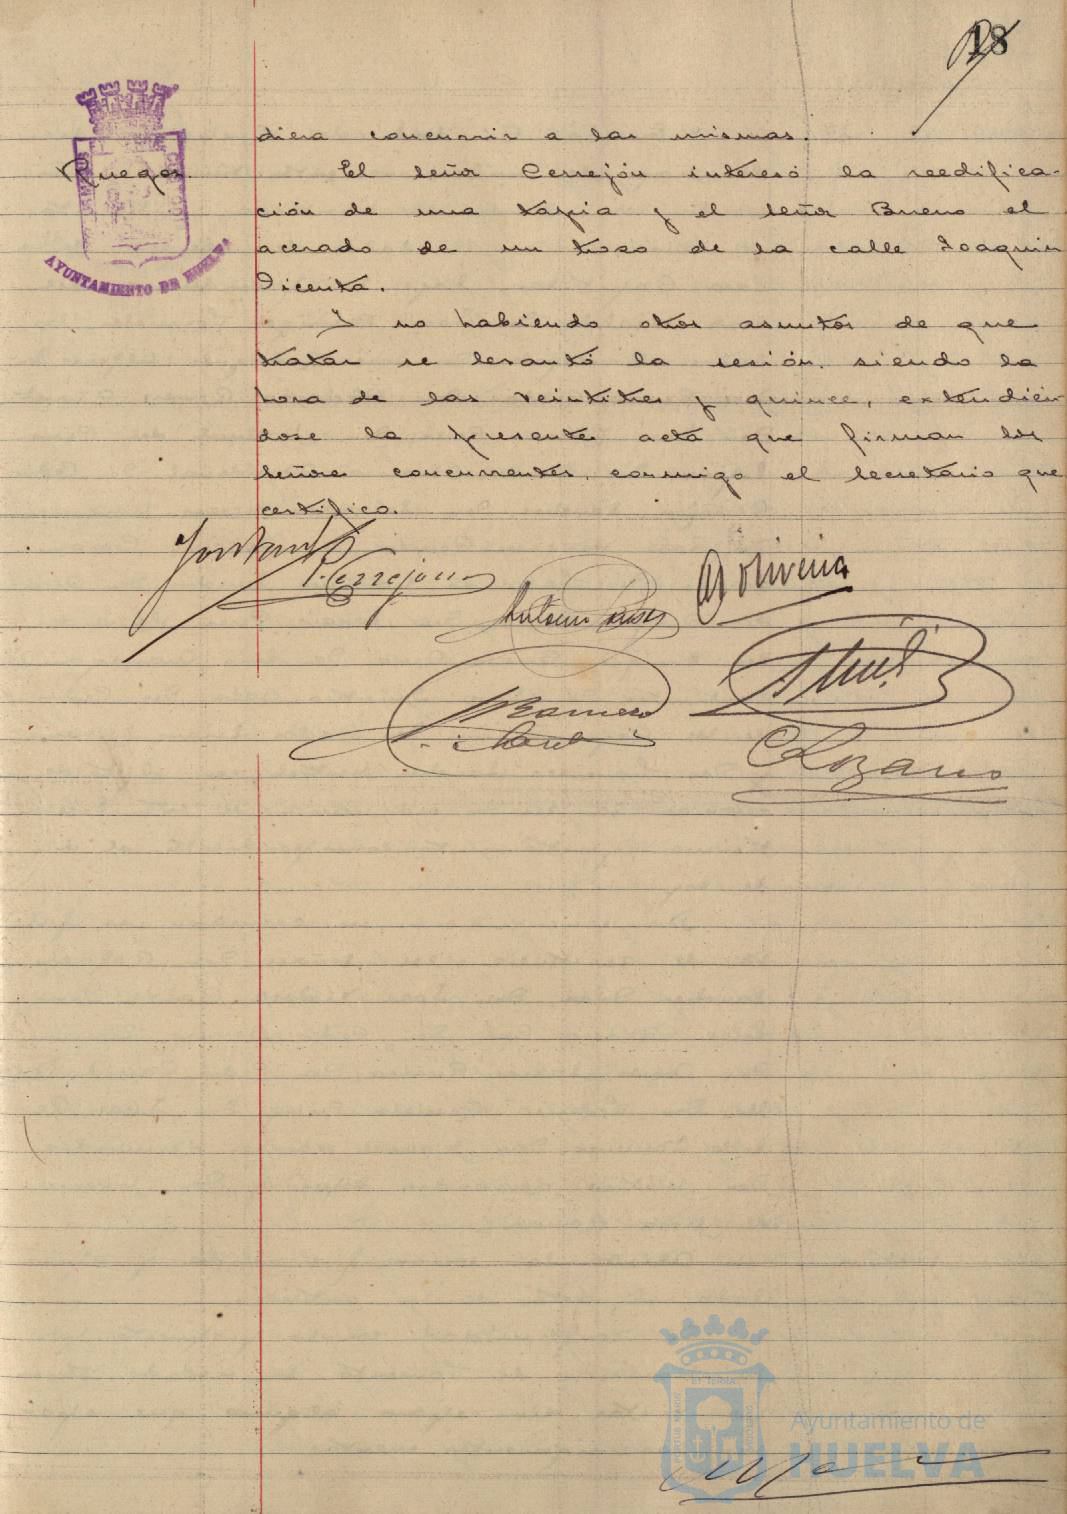 18
diera concurrir a las mismas.
Ruegos
El señor Cerrejón interesó la reedifica-
ción de una tapia y el señor Bueno el
acerado de un trozo de la calle Joaquin
Dicenta.
Y no habiendo otros asuntos de que
tratar se levantó la sesión, siendo la
hora de las veintitres y quince, extendien
dose la presente acta que firman los
señores concurrentes, conmigo el Secretario que
certifico.
AYUNTAMIENTO DE HUELVA
P. Cerrejon
Antonio
Oliveira
Romero
Lozano
PORTUS MARIS
ET TERRÆ
CUSTODIA
Ayuntamiento de
HUELVA